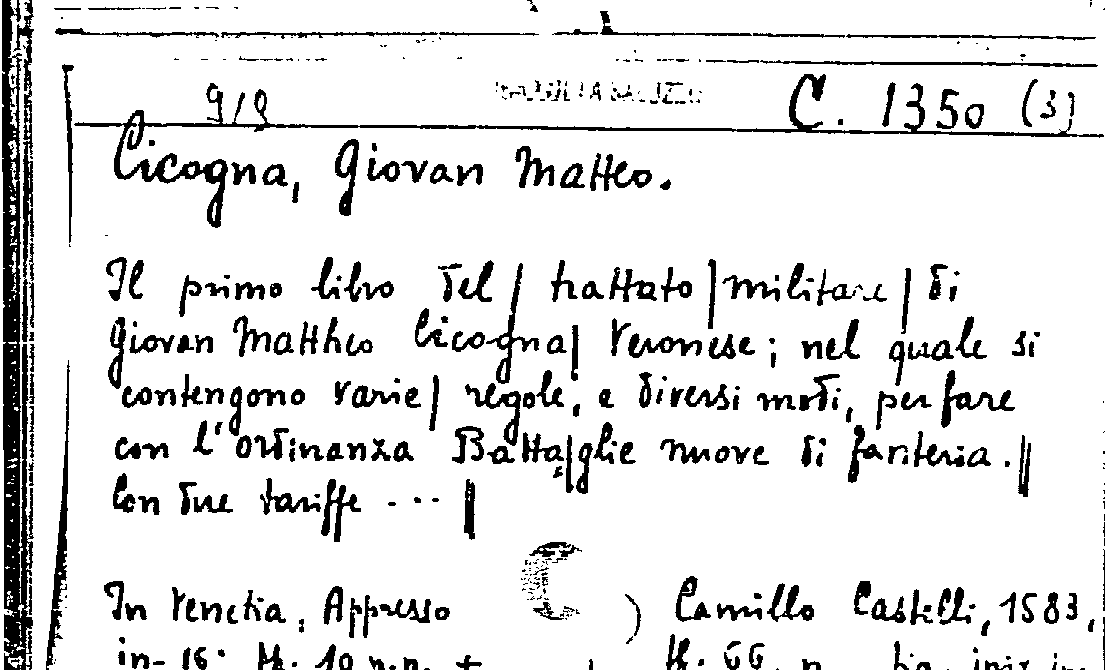 9/9 C. 1350 (3)
Cicogna, Giovan Matteo.
Il primo libro del / trattato | militare | di
Giovan Mattheo Cicogna | Veronese; nel quale si
contengono varie | regole, e diversi modi, per fare
con l'ordinanza Batta=|glie nuove di fanteria. ||
Con due tariffe ... ||
In Venetia, Appresso ) Camillo Castelli, 1583,
in-16°